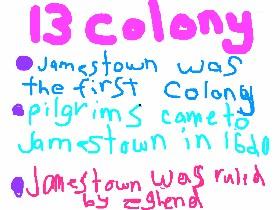 13 colony
Jamestown was
the first colony
pilgrims came to
Jamestown in 1620
Jamestown was rulid
by england